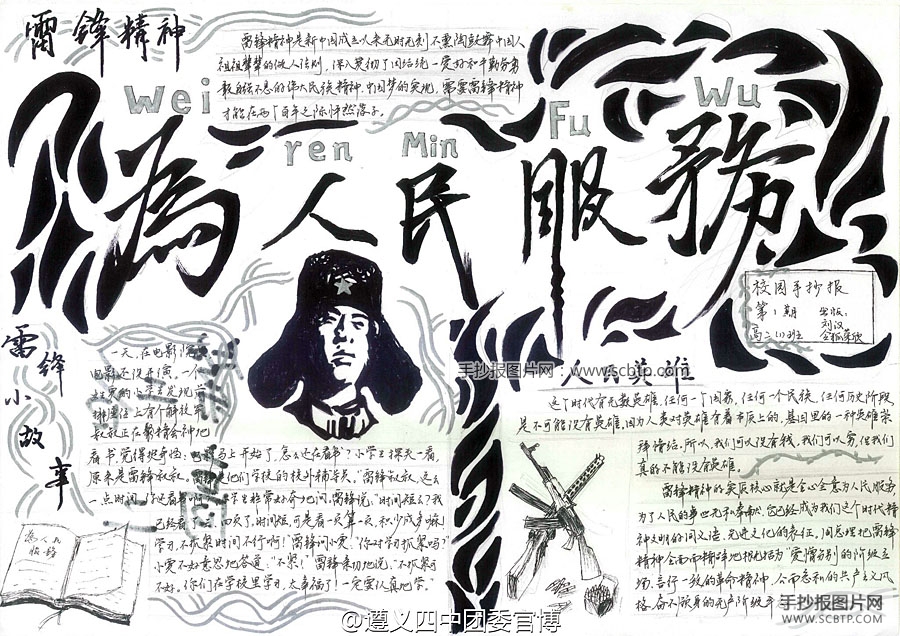 雷锋精神
雷锋精神是新中国成立以来无时无刻不震撼鼓舞中国人
祖祖辈辈的做人法则，深入贯彻了团结统一爱好和平勤劳勇
敢自强不息的伟大民族精神，中国梦的实现，需要雷锋精神
才能在两个百年之际怦然落子。
Wei
ren
Min
Fu
Wu
為人民服務
校园手抄报
第1期
出版:
高二(1)班
雷锋小故事
一天,在电影
电影还没开演。一个
小学生发现前
排座位上有个解放军
叔叔正在聚精会神地
看书,觉得挺奇怪:
马上开始了,怎么还在看书?小学生探头一看,
原来是雷锋叔叔。
他们学校的校外辅导员。"雷锋叔叔,这么
一点时间,你还看书啊
学生非常好奇地问,雷锋说:"时间短么?我
已经看了三、四页了,时间短,可是看一页算一页,积少成多嘛!
学习,不抓紧时间不行啊!"雷锋问小雯:"你对学习抓紧吗?
小雯不好意思地答道:"不紧!"雷锋亲切地说:"不抓紧可
不好。你们在学校里学习,太幸福了!一定要认真地学"
為人民
服务
手抄报图片网：www.scbtp.com
人民英雄
这个时代有无数英雄,任何一个国家,任何个民族,任何历史阶段
是不可能没有英雄,因为人类对英雄有着本质上的,基因里的一种英雄崇
拜情结,所以,我们可以没有钱,我们可以穷,但我们
真的不能没有英雄。
雷锋精神的实质核心就是全心全意为人民服务,
为了人民的事业无私奉献,它已经成为我们这个时代精
神文明的同义语、先进文化的表征,周总理把雷锋
精神全面而精辟地概括为"爱憎分明的阶级立
场、言行一致的革命精神、公而忘私的共产主义风
格、奋不顾身的无产阶级
手抄报图片网
WWW.SCBTP.COM
@遵义四中团委官博